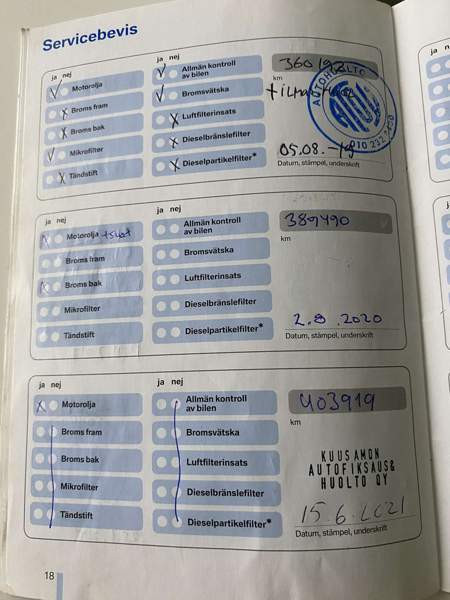 Servicebevis
ja nej
Motorolja
Broms fram
Broms bak
Mikrofilter
Tändstift
ja nej
Allmän kontroll
av bilen
Bromsvätska
Luftfilterinsats
Dieselbränslefilter
Dieselpartikelfilter*
km
AUTOHUOLTO
010 232
05.08.-19
Datum, stämpel, underskrift
ja nej
Motorolja
Broms fram
Broms bak
Mikrofilter
Tändstift
ja nej
Allmän kontroll
av bilen
Bromsvätska
Luftfilterinsats
Dieselbränslefilter
Dieselpartikelfilter*
389490
km
2.9.2020
Datum, stämpel, underskrift
ja nej
Motorolja
Broms fram
Broms bak
Mikrofilter
Tändstift
ja nej
Allmän kontroll
av bilen
Bromsvätska
Luftfilterinsats
Dieselbränslefilter
Dieselpartikelfilter*
403919
km
KUUSAMON
AUTOFIKSAUS&
HUOLTO OY
15.6.2021
Datum, stämpel, underskrift
18
ja